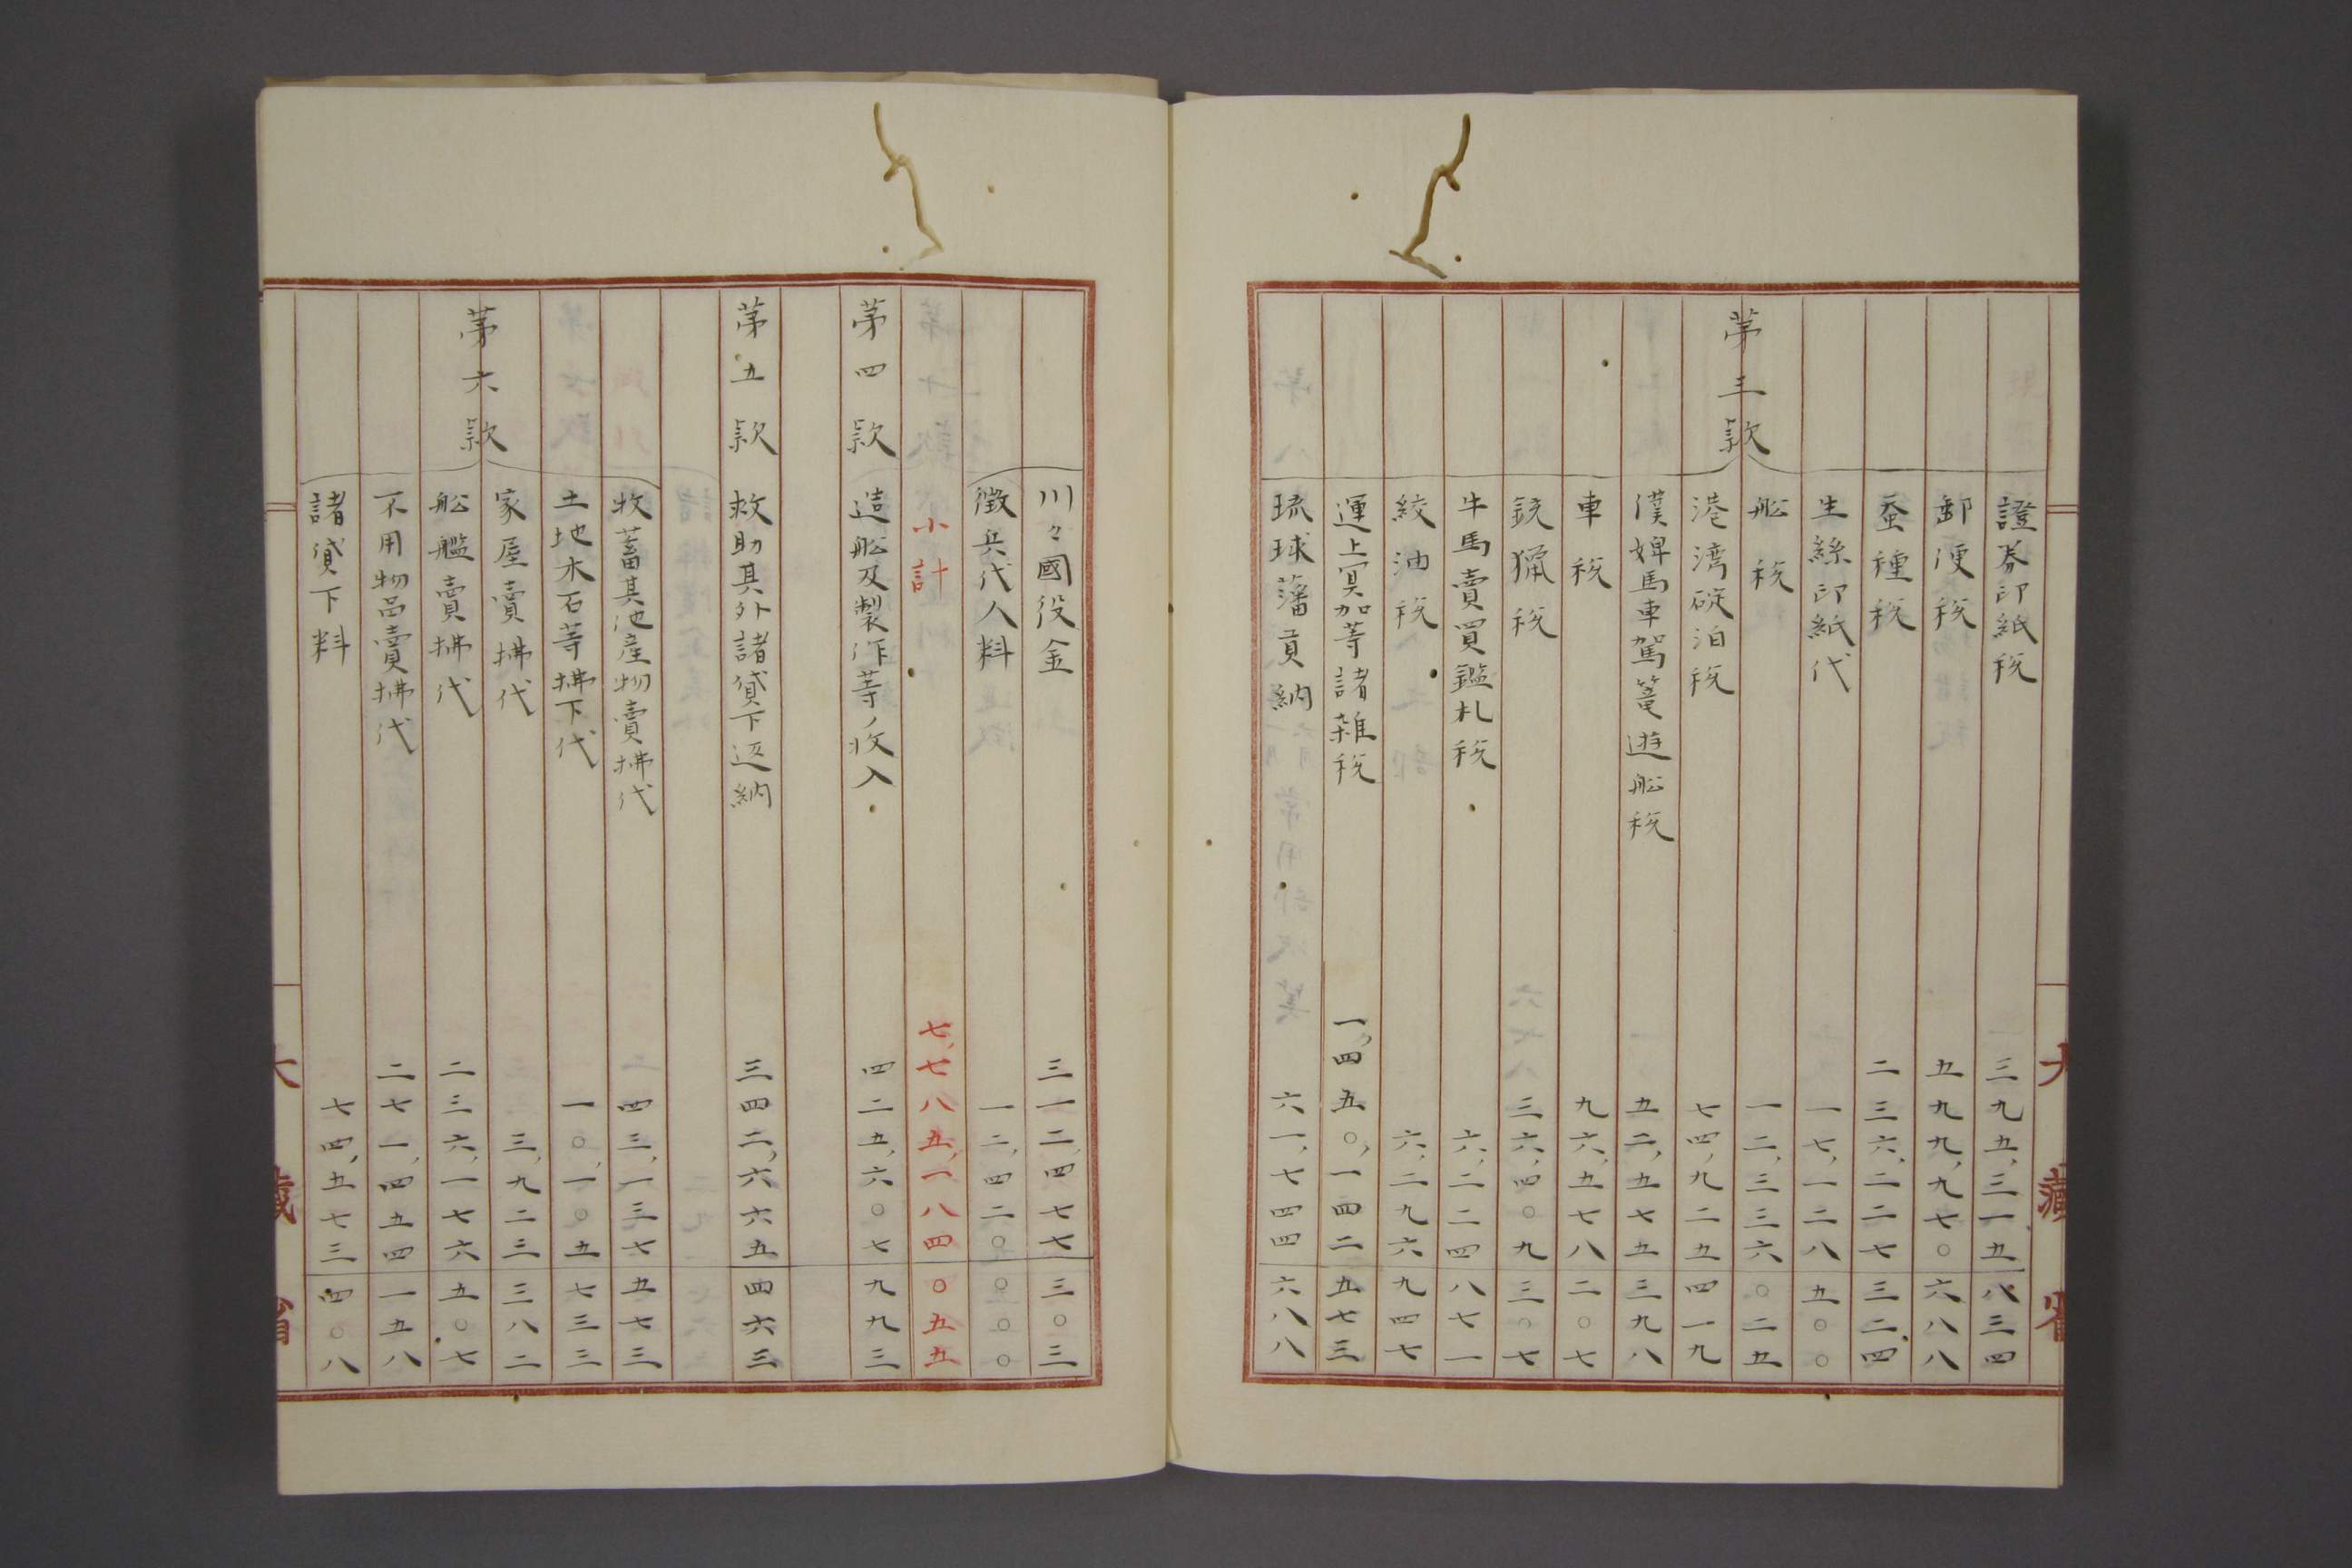 第三款
證券印紙税 三九五,三一五 八三四
郵便税 五九九,九七〇 六八八
蚕種税 二三六,二二七 三二四
生絲印紙代 一七,一二八 五〇〇
舩税 一二,三三六 〇二五
港湾碇泊税 七四,九二五 四一九
僕婢馬車駕篭遊舩税 五二,五七五 三九八
車税 九六,五七八 二〇七
銃猟税 三六,四〇九 三〇七
牛馬賣買鑑札税 六,二二四 八七一
絞油税 六,二九六 九四七
運上冥加等諸雜税 一,四五〇,一四二 五七三
琉球藩貢納 六一,七四四 六八八
大藏省
川々國役金 三一二,四七七 三〇三
徴兵代人料 一二,四二〇 〇〇〇
小計 七,七八五,一八四 〇五五
第四款 造舩及製作等ノ收入 四二五,六〇七 九九三
第五款 救助其外諸貸下返納 三四二,六六五 四六三
第六款
牧蓄其他産物賣拂代 四三,一三七 五七三
土地木石等拂下代 一〇一,一〇五 七三三
家屋賣拂代 三,九二三 三八二
舩艦賣拂代 二三六,一七六 五〇七
不用物品賣拂代 二七一,四五四 一五八
諸貸下料 七四,五七三 四〇八
大藏省